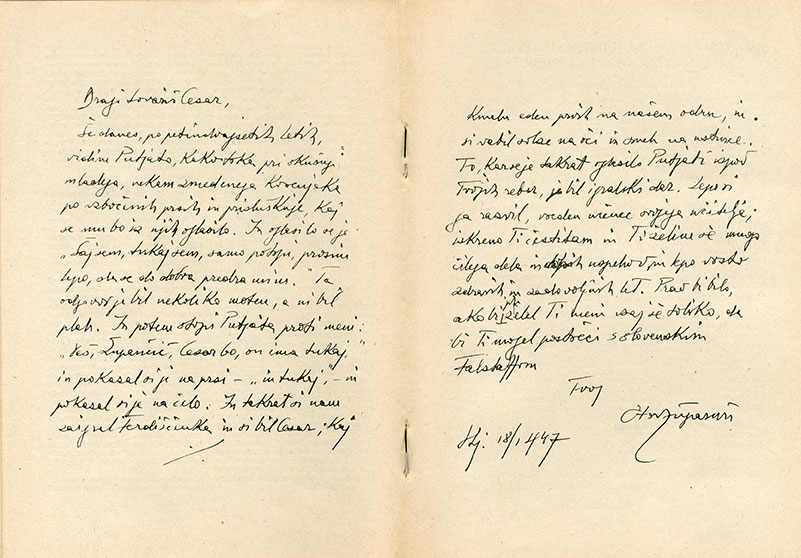 Dragi tovariš Cesar,
Še danes, po petindvajsetih letih,
vidim Putjáta, kako trka pri okušnji
mladega, nekam zmedenega Korenjaka
po izbočenih prsih in prisluškuje, kaj
se mu bo iz njih oglasilo. In oglasilo se je:
"Saj sem, tukaj sem, samo potrpi, prosim
lepo, da se do dobra predramim." Ta
odgovor je bil nekoliko moten, a ni bil
plah. In potem stopi Putjáta proti meni:
"Veš, Župančič, Cesar bo, on ima tukaj,"
in pokazal si je na prsi – "in tukaj," – in
pokazal si je na čelo. In takrat si nam
zaigral Ferdiščenka in si bil Cesar, kaj
kmalu eden prvih na našem odru, in
si vabil solze na oči in smeh na ustnice.
To, kar se je takrat oglasilo Putjáti izpod
Tvojih reber, je bil igralski dar. Lepo si
ga razvil, vreden učenec svojega učitelja;
iskreno Ti čestitam in Ti želim še mnogo
čilega dela in uspehov in kpo vrsto
zdravih in zadovoljnih let. Prav bi bilo,
ako bi želel Ti meni vsaj še toliko, da
bi Ti mogel postreči s slovenskim
Falstaffom
Tvoj
Oton Župančič
Lj. 18/1 447